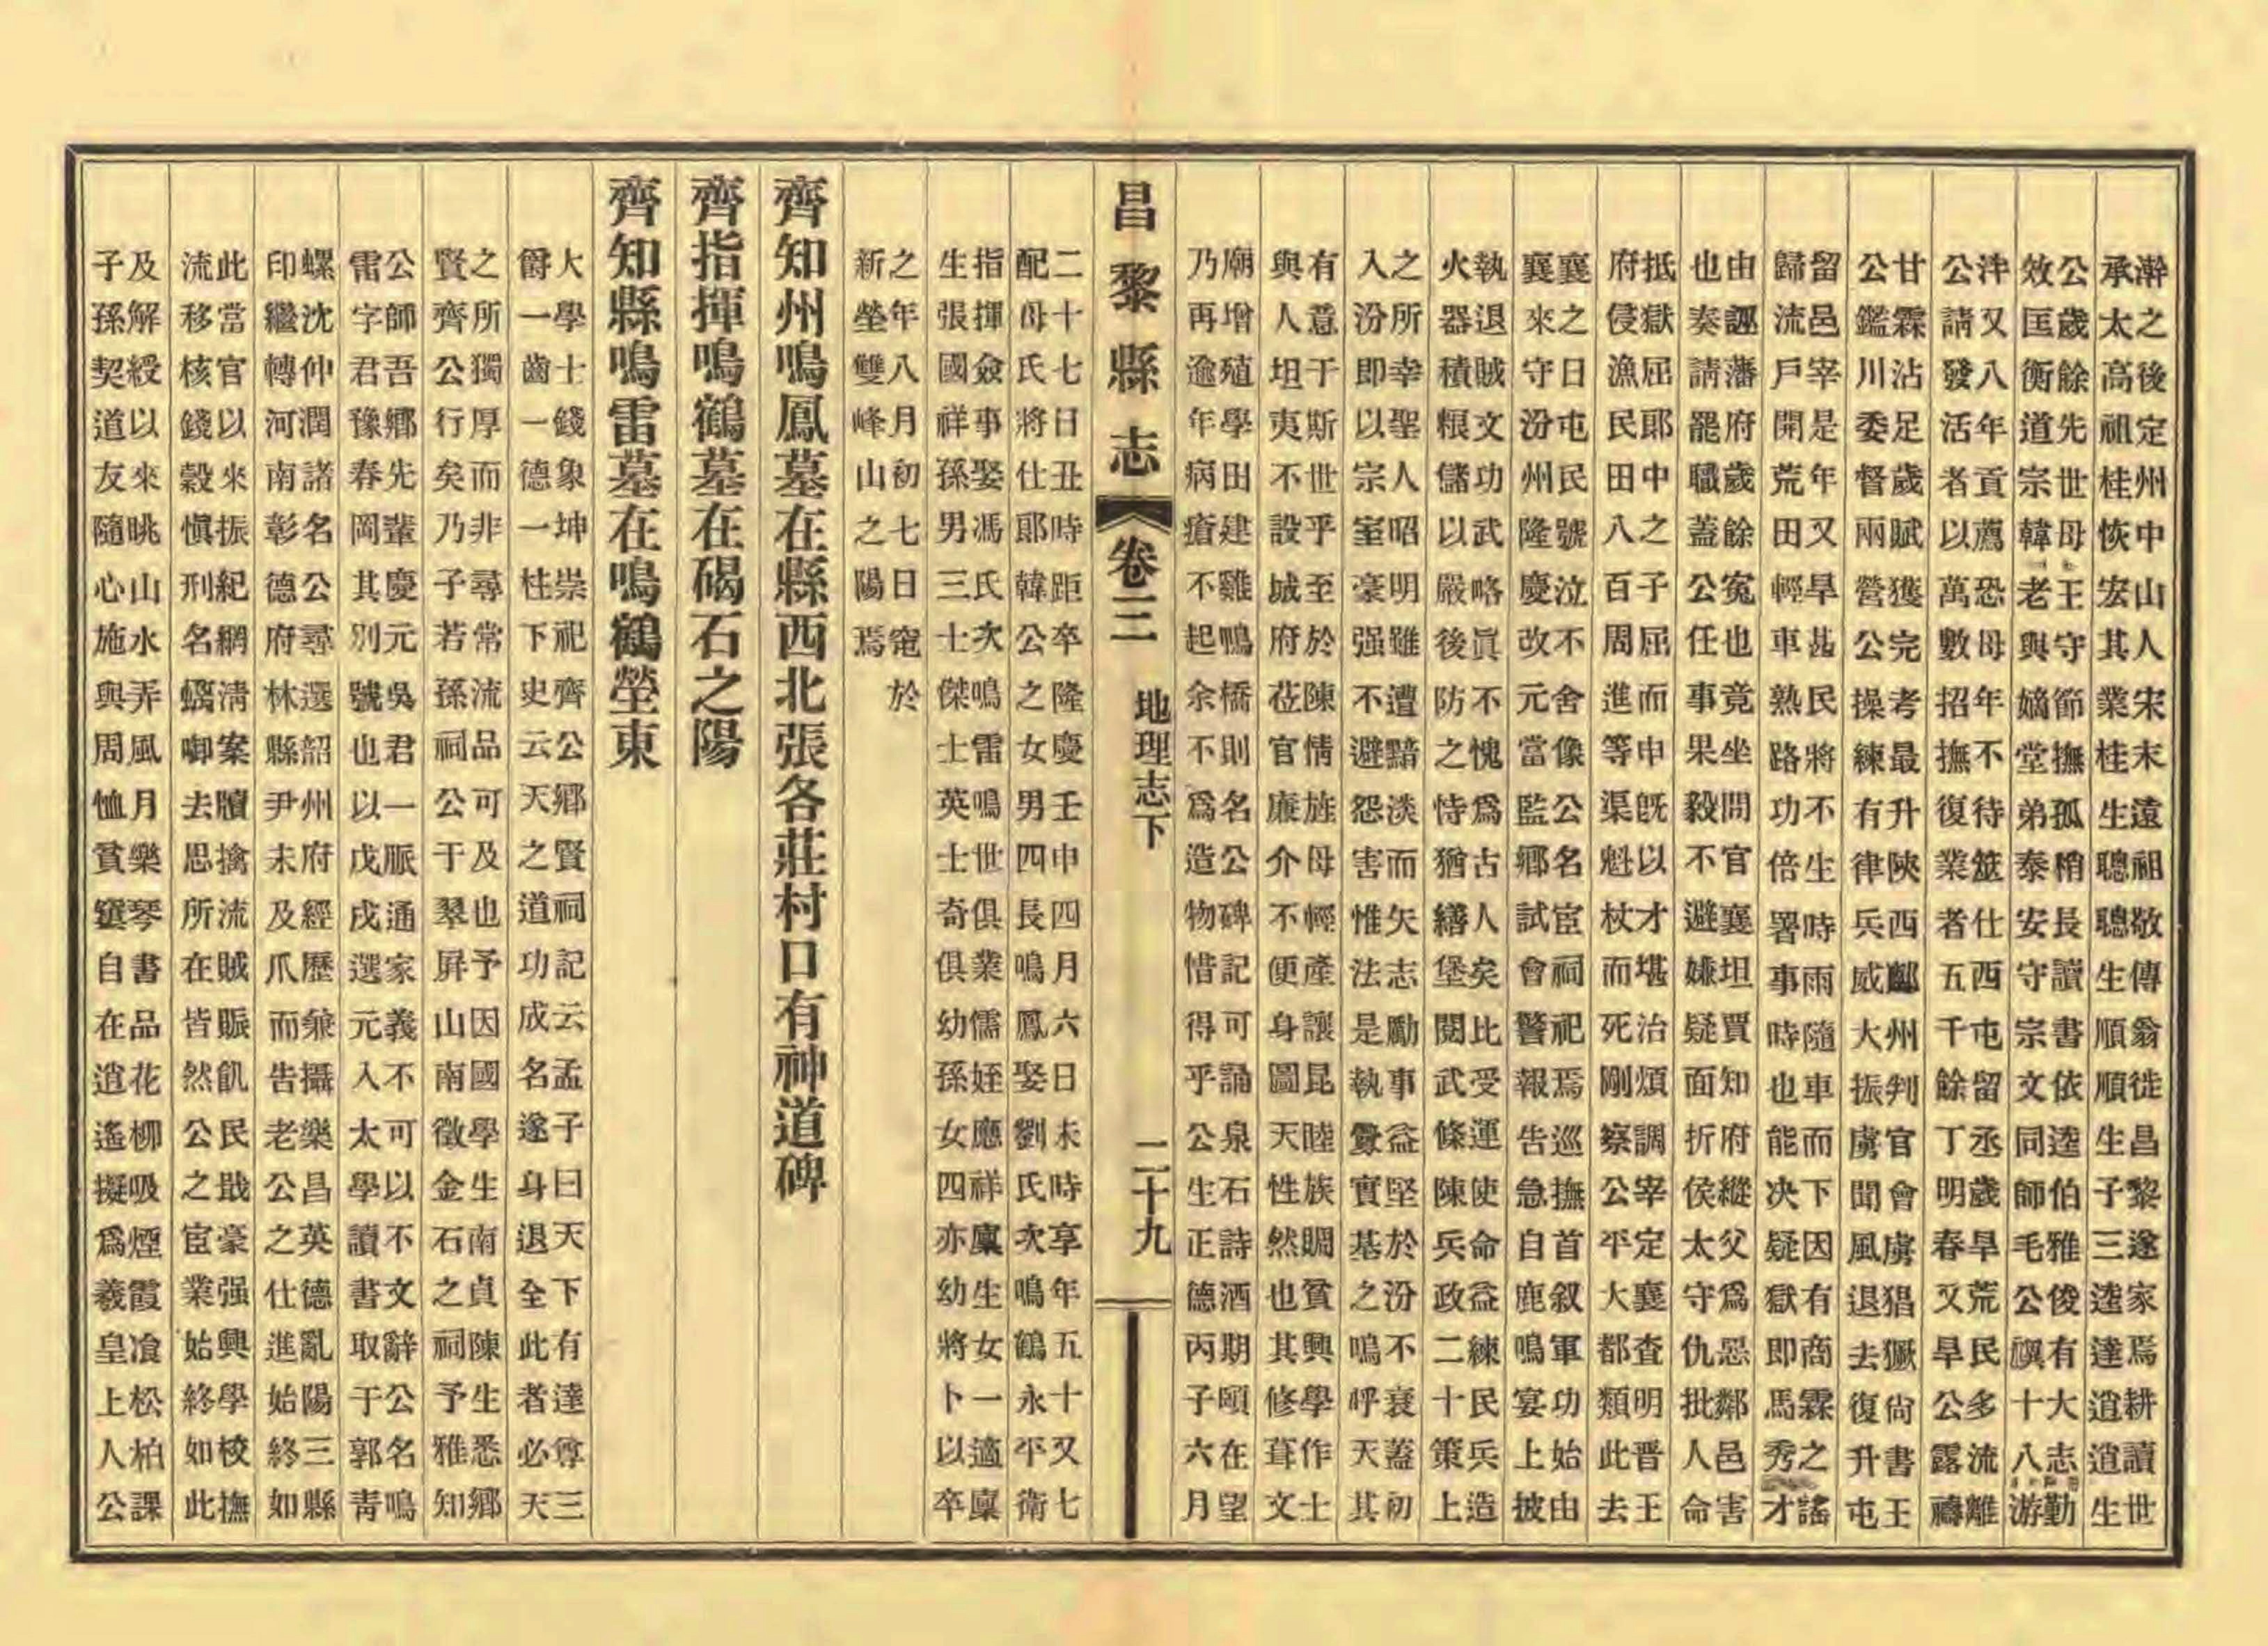 澣之後定州中山人宋末遠祖敬傳翁徙昌黎遂家焉耕讀世
承太高祖桂恢宏其業桂生聰聰生順順生子三逵達道道生
公歲餘先世母王守節撫孤稍長讀書依逵伯雅俊有大志勤
效匡衡道宗韓老與嫡堂弟泰安守宗文同師毛公禩十八游
泮又八年貢薦恐母年不待筮仕西屯留丞歲旱荒民多流離
公請發活者以萬數招撫復業者五千餘丁明春又旱公露禱
甘霖沾足歲賦獲完考最升陝西鄜州判官會虜猖獗尚書王
公鑑川委督兩營公操練有律兵威大振虜聞風退去復升屯
留邑宰是年又旱甚民將不生時雨隨車而下因有商霖之謠
歸流戶開荒田輕車熟路功倍署事時也能決疑獄即馬秀才
由誣藩府歲餘寃也竟坐問官襄坦賈知府縱父爲惡鄰邑害
也奏請罷職蓋公任事果毅不避嫌疑面折侯太守仇批人命
抵獄屈郎中之子屈而申既以才堪治煩調宰定襄查明晋王
府侵漁民田八百周進等渠魁杖而死剛察公平大都類此去
襄之日屯民號泣不舍像公名宦祠祀焉巡撫首叙軍功始由
襄來守汾州隆慶改元當監鄉試會警報告急自鹿鳴宴上披
執退賊文功武略眞不愧爲古人矣比受運使命益練民兵造
火器積粮儲以嚴後防之恃猶繕堡閱武條陳兵政二十策上
之所幸聖人昭明雖遭黯淡而矢志勵事益堅於汾不衰蓋初
入汾即以宗室豪强不避怨害惟法是執釁實基之鳴呼天其
有意于斯世乎至於陳情旌母輕產讓昆睦族賙貧興學作士
與人坦夷不設城府莅官廉介不便身圖天性然也其修葺文
廟增殖學田建雞鴨橋則名公碑記可誦泉石詩酒期頤在望
乃再逾年病瘡不起余不爲造物惜得乎公生正德丙子六月
昌黎縣志 卷三 地理志下 二十九
二十七日丑時距卒隆慶壬申四月六日未時享年五十又七
配母氏將仕郞韓公之女男四長鳴鳳娶劉氏次鳴鶴永平衛
指揮僉事娶馮氏次鳴雷鳴世俱業儒姪應祥廩生女一適廩
生張國祥孫男三士傑士英士奇俱幼孫女四亦幼將卜以卒
之年八月初七日窀於
新塋雙峰山之陽焉
齊知州鳴鳳墓在縣西北張各莊村口有神道碑
齊指揮鳴鶴墓在碣石之陽
齊知縣鳴雷墓在鳴鶴塋東
大學士錢象坤崇祀齊公鄉賢祠記云孟子曰天下有達尊三
爵一齒一德一桂下史云天之道功成名遂身退全此者必天
之所獨厚而非尋常流品可及也予因國學生南貞陳生悉鄉
賢齊公行矣乃子若孫祠公于翠屏山南徵金石之祠予雅知
公師吾鄉先輩慶元吳君一脈通家義不可以不文辭公名鳴
雷字君豫春岡其別號也以戊戌選元入太學讀書取于郭靑
螺沈仲潤諸名公尋選韶州府經歷兼攝樂昌英德亂陽三縣
印繼轉河南彰德府林縣尹未及爪而告老公之仕進始終如
此當官以來振紀網淸案牘擒流賊賑飢民戢豪强興學校撫
流移核錢穀愼刑名蠲啣去思所在皆然公之宦業始終如此
及解綬以來眺山水弄風月樂琴書品花柳吸煙霞飡松柏課
子孫契道友隨心施與周恤貧簍自在逍遙擬爲羲皇上人公